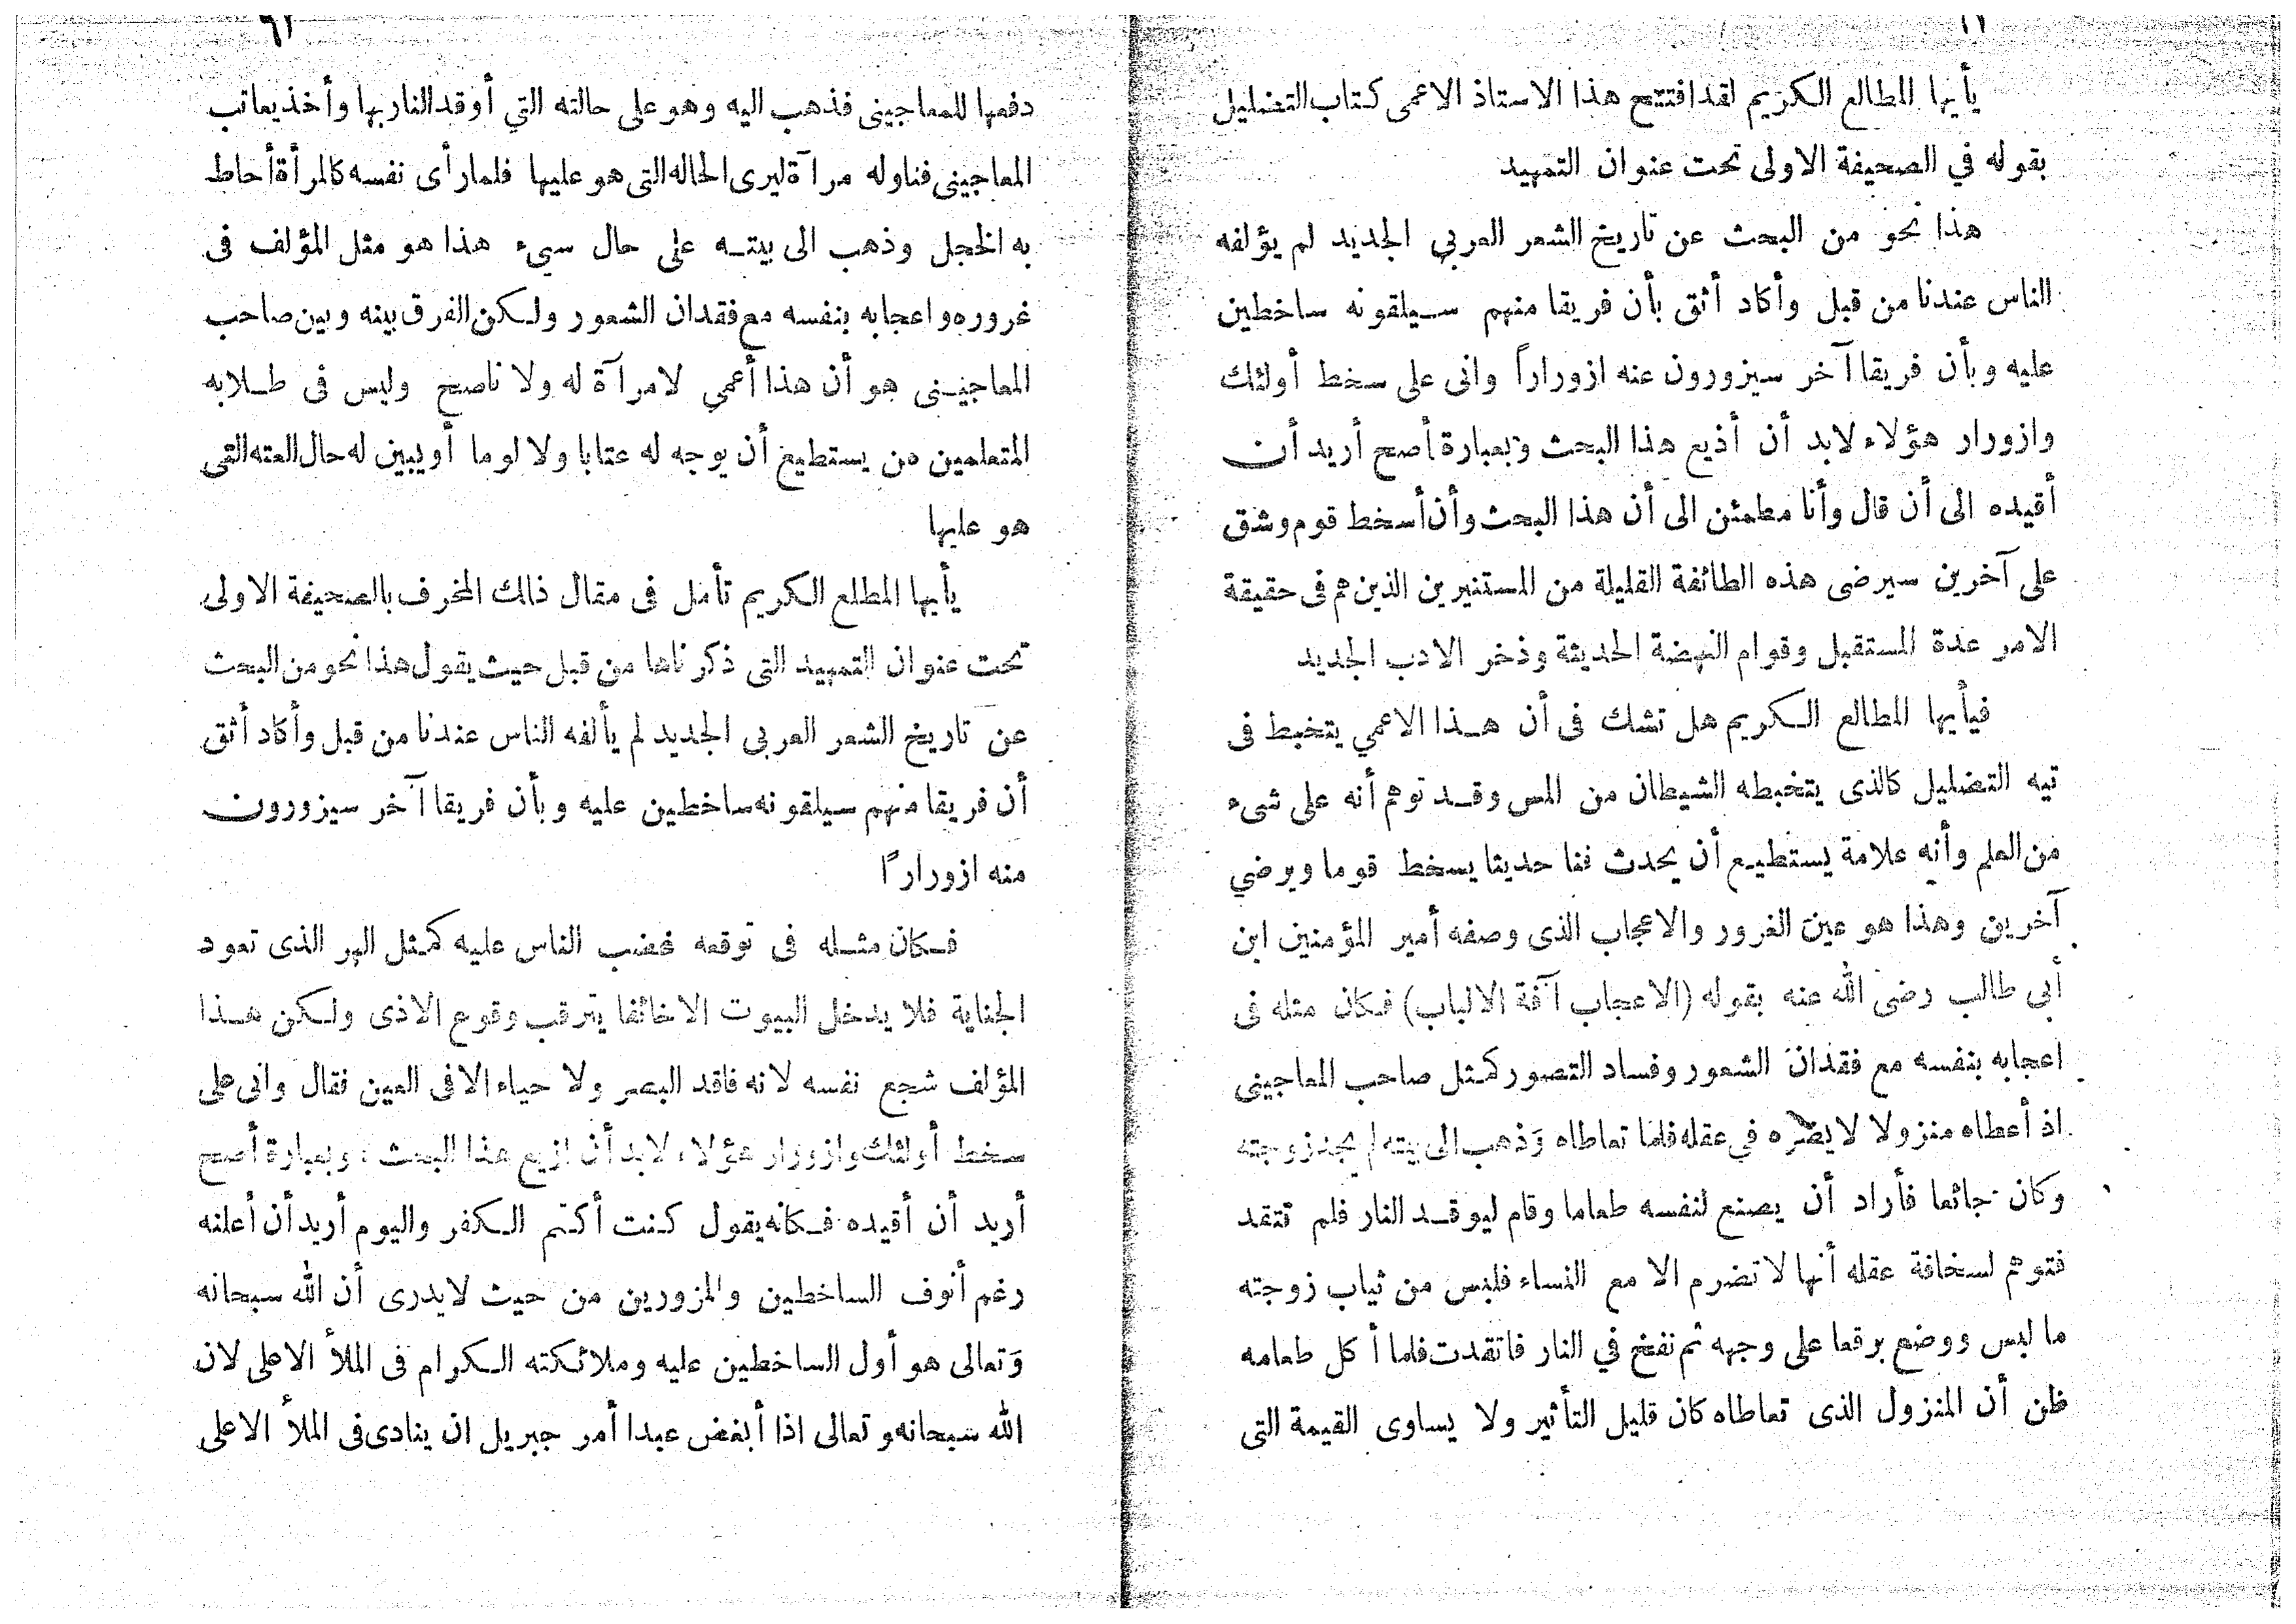 يأيها المطالع الكريم لقد افتتح هذا الاستاذ الاعمى كتاب التضليل
بقوله في الصحيفة الاولى تحت عنوان التمهيد
هذا نحو من البحث عن تاريخ الشعر العربي الجديد لم يؤلفه
الناس عندنا من قبل وأكاد أثق بأن فريقا منهم سيلقونه ساخطين
عليه وبأن فريقا آخر سيزورون عنه ازوراراً وانى على سخط أولئك
وازورار هؤلاء لابد أن أذيع هذا البحث وبعبارة أصح أريد أن
أقيده الى أن قال وأنا مطمئن الى أن هذا البحث وأن أسخط قوم وشق
على آخرين سيرضى هذه الطائفة القليلة من المستنيرين الذين هم فى حقيقة
الامر عدة المستقبل وقوام النهضة الحديثة وذخر الادب الجديد
فيأيها المطالع الكريم هل تشك فى أن هذا الاعمي يتخبط فى
تيه التضليل كالذى يتخبطه الشيطان من المس وقد توهم أنه على شىء
من العلم وأنه علامة يستطيع أن يحدث فنا حديثا يسخط قوما ويرضي
آخرين وهذا هو عين الغرور والاعجاب الذى وصفه أمير المؤمنين ابن
أبى طالب رضى الله عنه بقوله (الاعجاب آفة الالباب) فكان مثله فى
اعجابه بنفسه مع فقدان الشعور وفساد التصور كمثل صاحب المعاجينى
اذ أعطاه منزولا لا يضره في عقله فلما تعاطاه وذهب الى بيته لم يجد زوجته
وكان جائعا فأراد أن يصنع لنفسه طعاما وقام ليوقد النار فلم تتقد
فتوهم لسخافة عقله أنها لا تضرم الا مع النساء فلبس من ثياب زوجته
ما لبس ووضع برقعا على وجهه ثم نفخ في النار فاتقدت فلما أكل طعامه
ظن أن المنزول الذى تعاطاه كان قليل التأثير ولا يساوى القيمة التى
دفعها للمعاجينى فذهب اليه وهو على حالته التي أوقد النار بها وأخذ يعاتب
المعاجينى فناوله مرآة ليرى الحاله التى هو عليها فلما رأى نفسه كالمرأة أحاط
به الخجل وذهب الى بيته على حال سيء هذا هو مثل المؤلف فى
غروره واعجابه بنفسه مع فقدان الشعور ولكن الفرق بينه وبين صاحب
المعاجينى هو أن هذا أعمي لا مرآة له ولا ناصح وليس فى طلابه
المتعلمين من يستطيع أن يوجه له عتابا ولا لوما أو يبين له حال العته التى
هو عليها
يأيها المطلع الكريم تأمل فى مقال ذلك المخرف بالصحيفة الاولى
تحت عنوان التمهيد التى ذكرناها من قبل حيث يقول هذا نحو من البحث
عن تاريخ الشعر العربى الجديد لم يألفه الناس عندنا من قبل وأكاد أثق
أن فريقا منهم سيلقونه ساخطين عليه وبأن فريقا آخر سيزورون
منه ازوراراً
فكان مثله فى توقعه غضب الناس عليه كمثل الهر الذى تعود
الجناية فلا يدخل البيوت الا خائفا يترقب وقوع الاذى ولكن هذا
المؤلف شجع نفسه لانه فاقد البصر ولا حياء الا فى العين فقال وانى على
سخط أولئك وازورار هؤلاء لابد أن ازيع هذا البحث ، وبعبارة أصح
أريد أن أقيده فكانه يقول كنت أكتم الكفر واليوم أريد أن أعلنه
رغم أنوف الساخطين والمزورين من حيث لا يدرى أن الله سبحانه
وتعالى هو أول الساخطين عليه وملائكته الكرام فى الملأ الاعلى لان
الله سبحانه وتعالى اذا أبغض عبدا أمر جبريل ان ينادى فى الملأ الاعلى